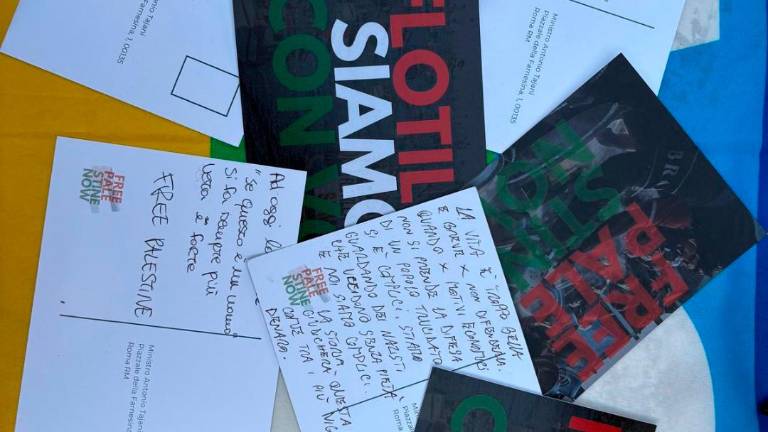 Ministro Antonio Tajani
Piazzale della Farnesina, 1, 00135
Roma RM
FLOTIL
SIAMO
CON V
Ministro Antonio Tajani
Piazzale della Farnesina, 1, 00135
Roma RM
FREE
PALE
STINE
NOW
FREE
PALE
STINE
NOW
Ad oggi
"Se questo è un uomo"
Si fa sempre più
vera e forte
FREE PALESTINE
Ministro Antonio Tajani
Piazzale della Farnesina
Roma RM
FREE
PALE
STINE
NOW
LA VITA È TROPPO BELLA
E X NON DIFENDERLA.
QUANDO X MOTIVI ECONOMICI
NON SI PRENDE LA DIFESA
DI UN POPOLO TRUCIDATO
SI È COMPLICI. STIAMO
GUARDANDO DEI NAZISTI
CHE UCCIDONO SENZA PIETÀ
E NOI SIAMO COMPLICI.
LA STORIA QUESTA
GIUDICHERÀ
COME TRA I PIÙ
DENARO.
Ministro
Piazzale
Roma RM